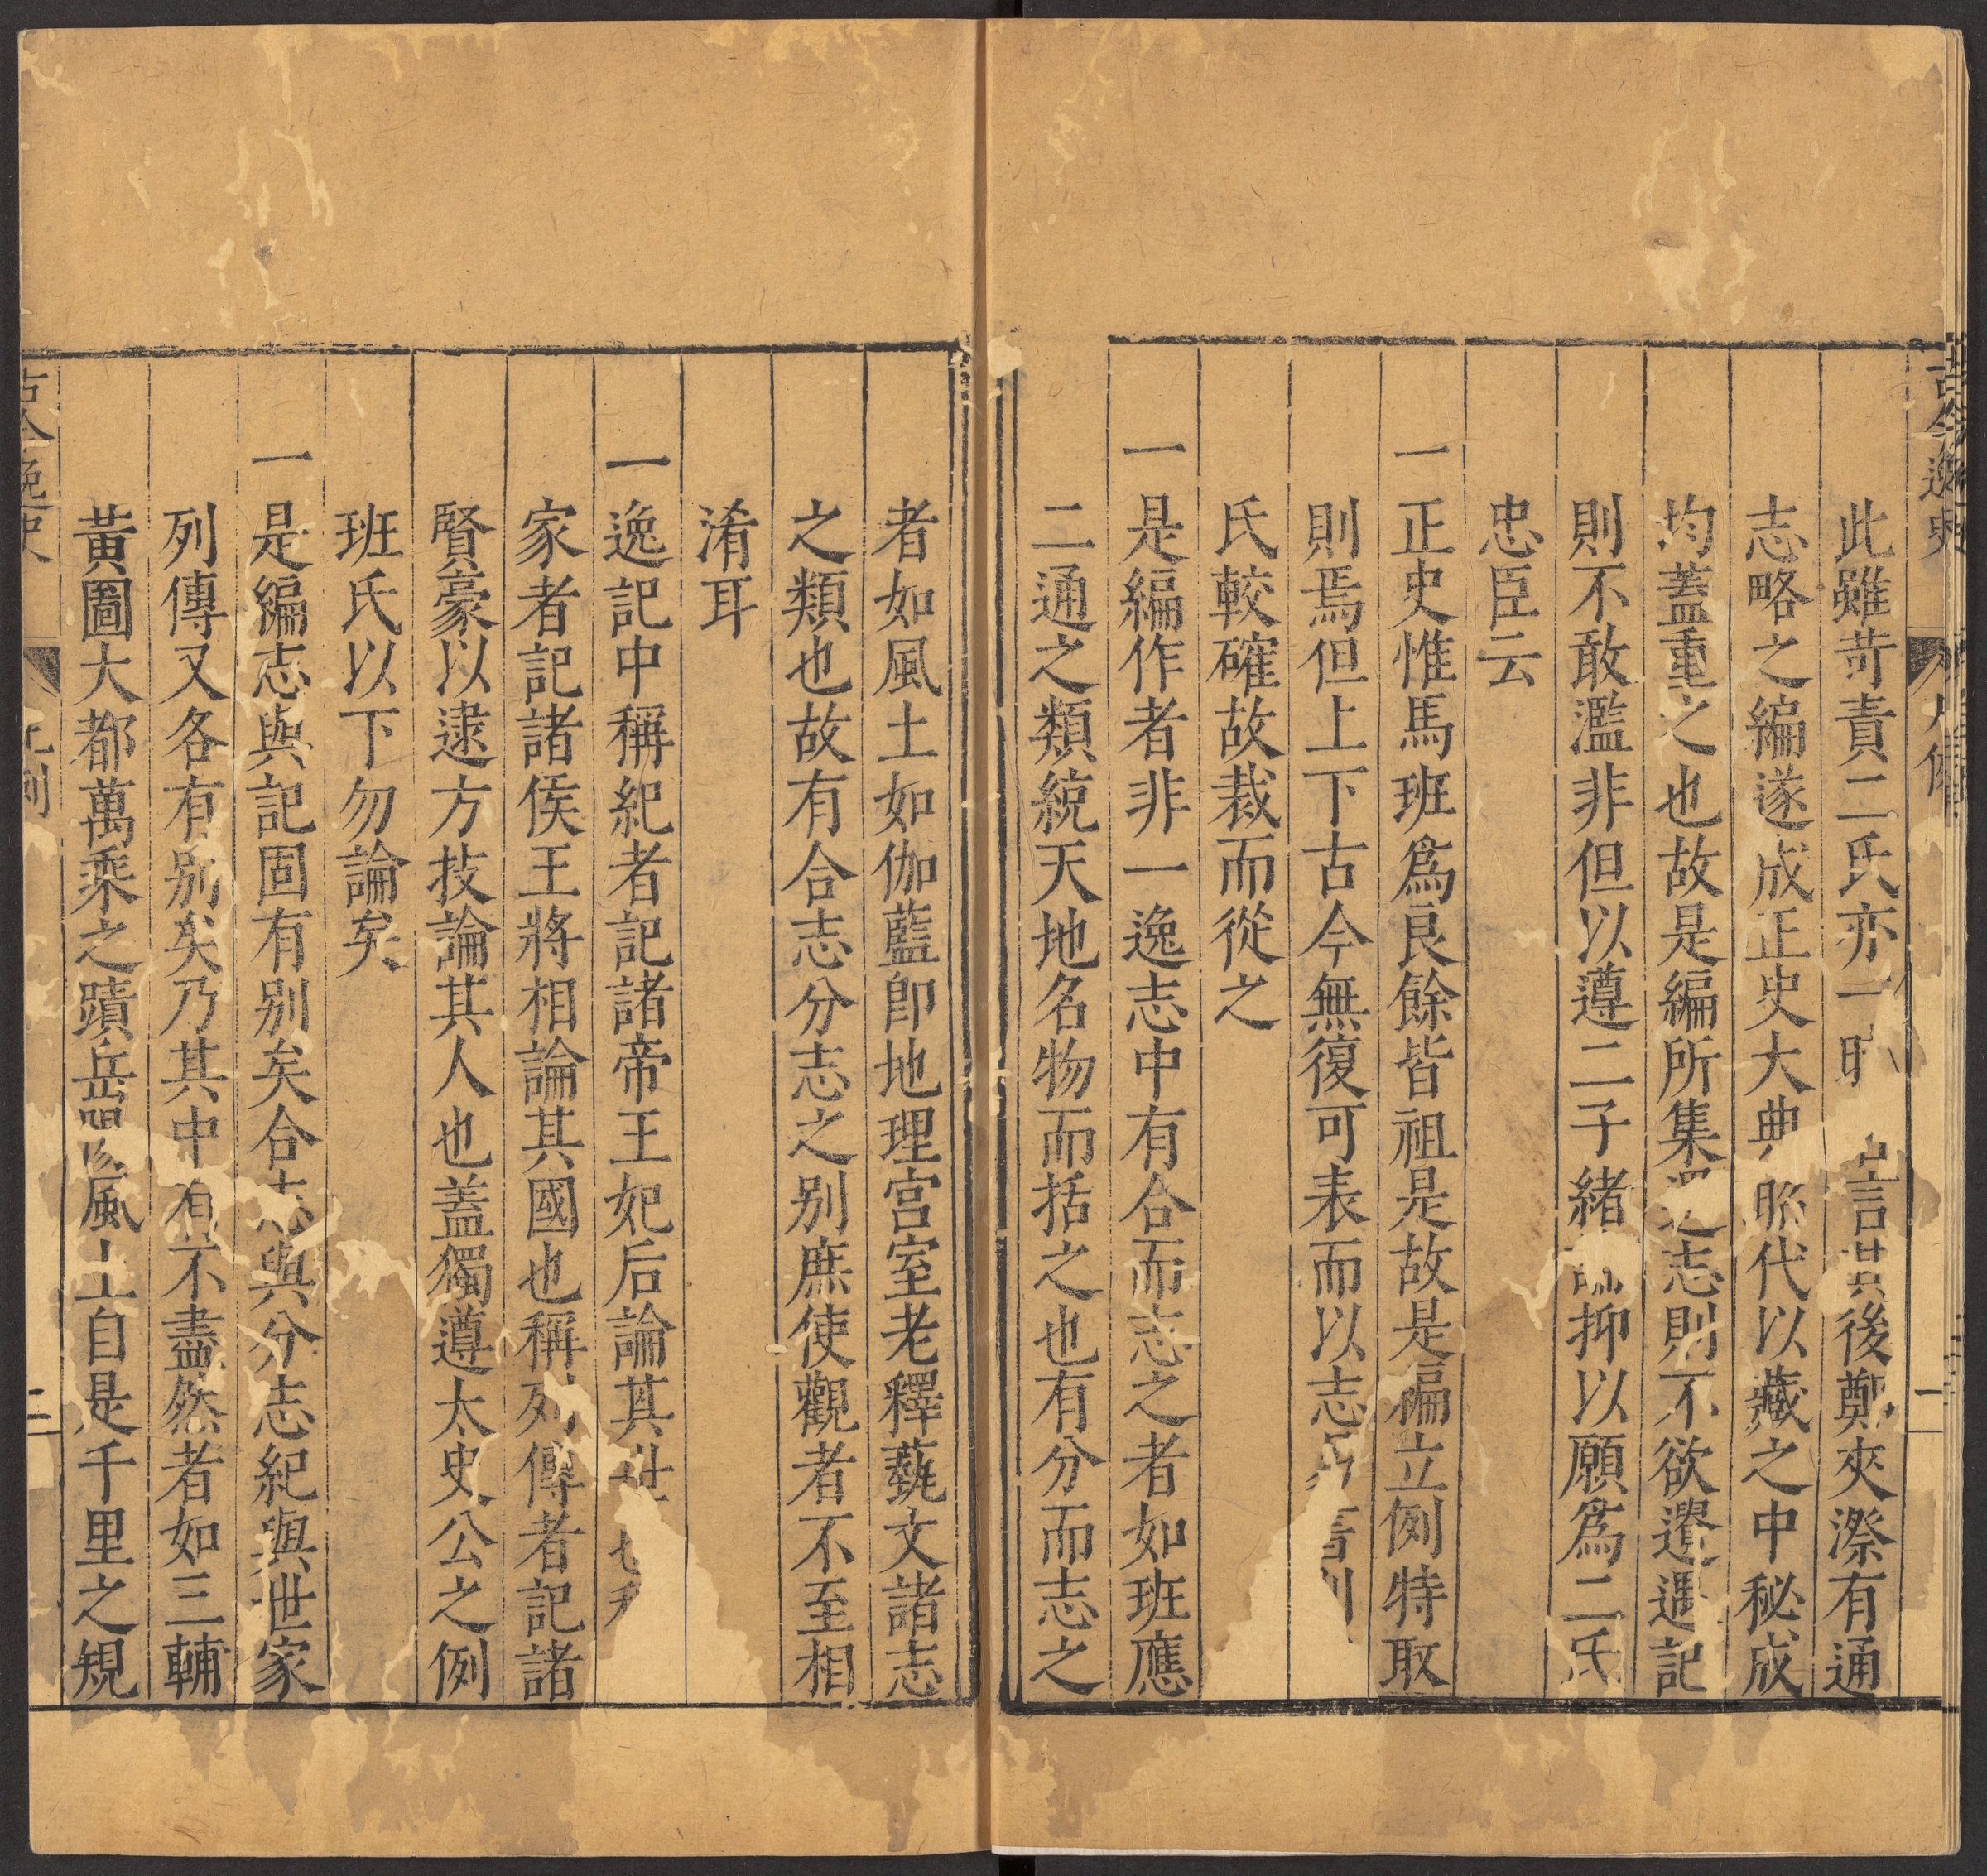 古今逸史
凡例
一
此雖苛責二氏亦一時言其後鄭夾漈有通
志略之編遂成正史大典昭代以藏之中秘成
均蓋重之也故是編所集之志則不欲遺遇記
則不敢濫非但以遵二子緒論抑以願爲二氏
忠臣云
一正史惟馬班爲良餘皆祖是故是編立例特取
則焉但上下古今無復可表而以志書則
氏較確故裁而從之
一是編作者非一逸志中有合而志之者如班應
二通之類統天地名物而括之也有分而志之
者如風土如伽藍卽地理宮室老釋藝文諸志
之類也故有合志分志之别庶使觀者不至相
淆耳
一逸記中稱紀者記諸帝王妃后論其世也稱
家者記諸侯王將相論其國也稱列傳者記諸
賢豪以逮方技論其人也蓋獨遵太史公之例
班氏以下勿論矣
一是編志與記固有别矣合志與分志紀與世家
列傳又各有别矣乃其中有不盡然者如三輔
黃圖大都萬乘之蹟岳陽風土自是千里之規
古今逸史
凡例
二